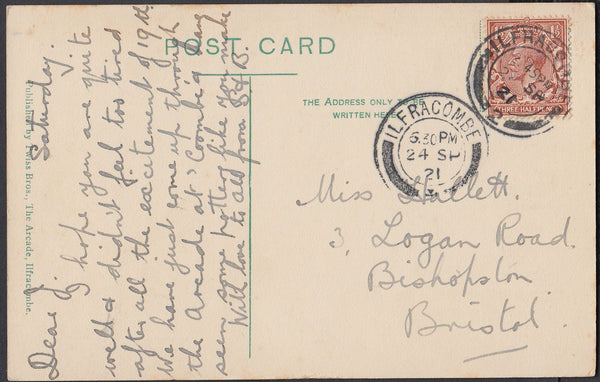 POST CARD
THE ADDRESS ONLY TO BE
WRITTEN HERE
Published by Twiss Bros., The Arcade, Ilfracombe.
Saturday.
Dear J. I hope you are quite
well & didn't feel too tired
after all the excitement of 19th.
We have just come up through
the Arcade at "Coombe" & have
seen some pottery like you made
With love to all from S & B.
THREE HALFPENCE
ILFRACOMBE
ILFRACOMBE
6.30 PM
24 SP
21
Miss
3, Logan Road.
Bishopston
Bristol.